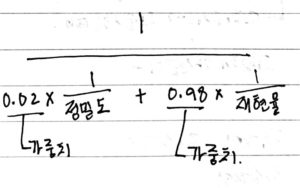 1
1 1
0.02 × 정밀도 + 0.98 × 재현율
가중치 가중치.